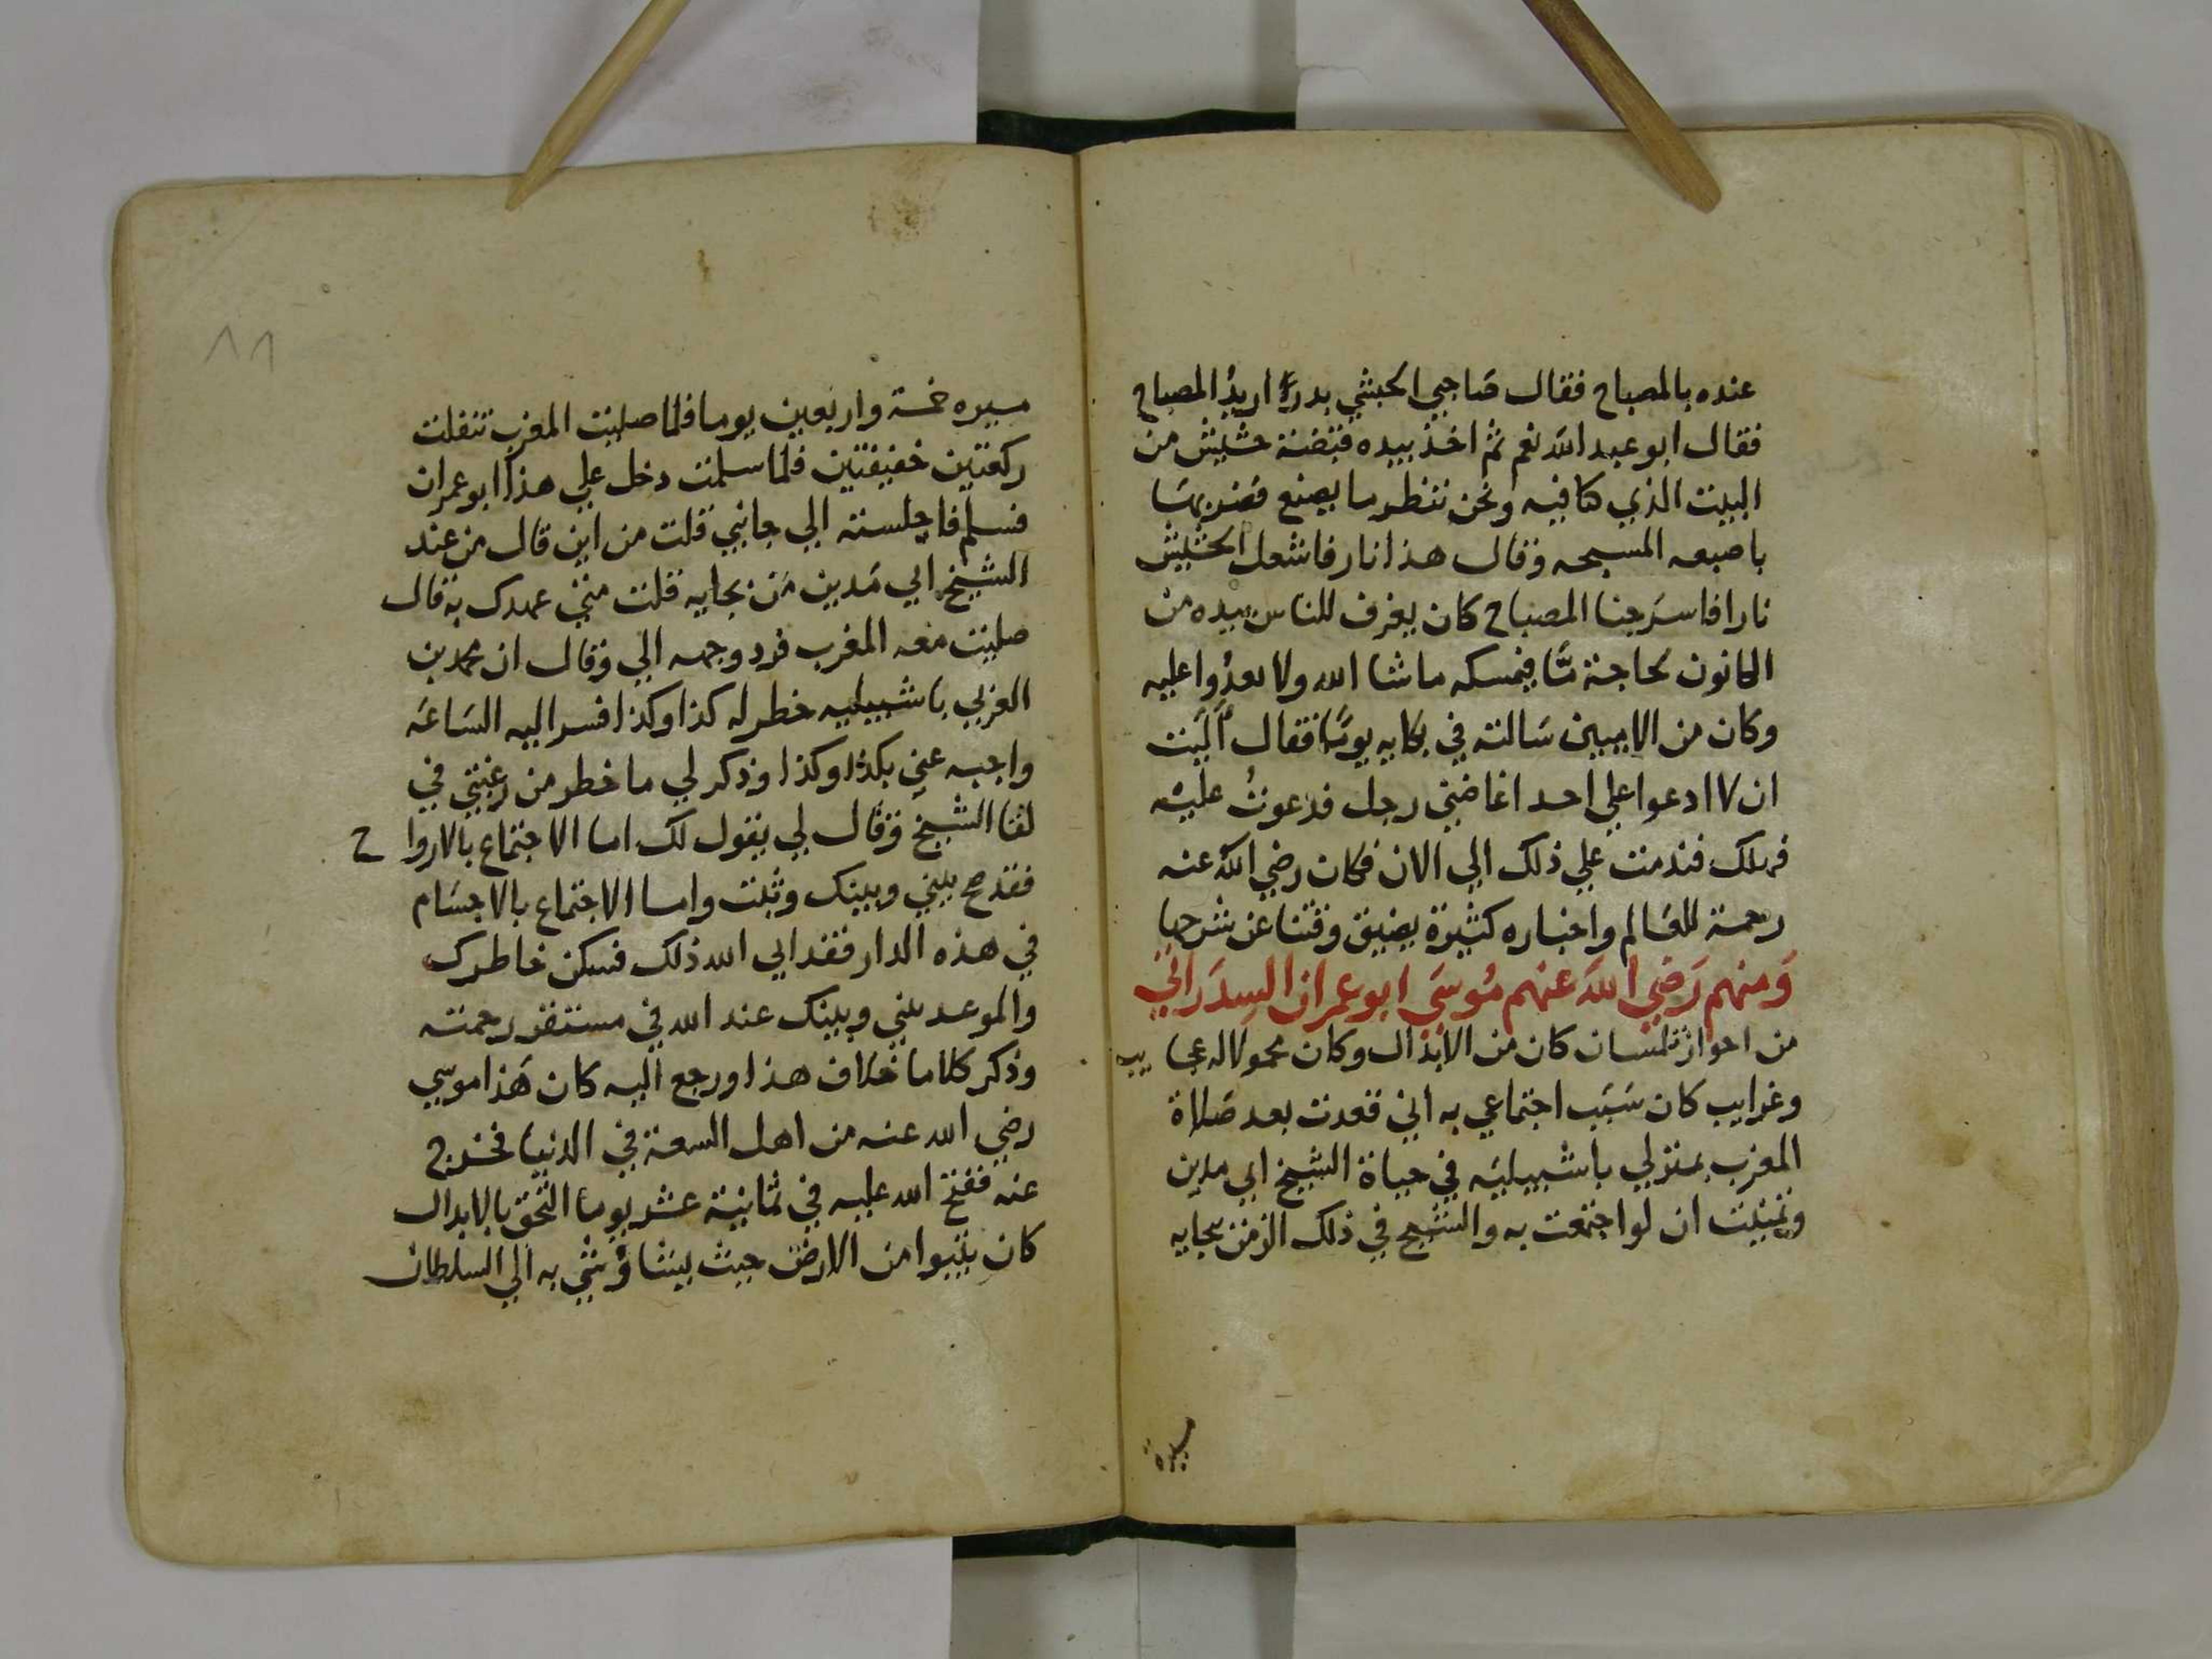 عنده بالمصباح فقال صاحبي الحبشي بدر اريد المصباح
فقال ابو عبد الله نعم ثم اخذ بيده قبضة حشيش من
البيت الذي كنا فيه ونحن ننظر ما يصنع فضربها
باصبعه المسبحه وقال هذا نار فاشعل الحشيش
نارا فاسرجنا المصباح كان يغرف للناس بيده من
الكانون لحاجة مّا فيمسكه ما شا الله ولا تعدُوا عليه
وكان من الاميين سَالته في بكايه يومًا فقال آليَت
ان لا ادعوا علي احد اغاضني رجل فدعوتُ عليه
فهلك فندمت علي ذلك الي الان فكان رضي الله عنه
رحمة للعَالم واخباره كثيرة يضيق وقتنا عن شرحها
وَمنهم رَضي الله عنهم مُوسَي ابو عمران السِدرَاني
من احواز تلمسان كان من الابدال وكان مجهولا له عجايب
وغرايب كان سَبَب اجتماعي به اني قعدت بعد صَلاة
المغرب بمنزلي باشبيليَه في حياة الشيخ ابي مدين
وتمنيت ان لو اجتمعت به والشيخ في ذلك الزمن ببجايه
مسيرة
٨٨
مسيره خمسة واربعين يوما فلما صليت المغرب تنفلت
ركعتين خفيفتين فلما سلمت دخل علي هذا ابو عمران
فسلم فاجلسته الي جانبي قلت من اين قال من عند
الشيخ ابي مَدين مَن بجايه قلت متي عهدك به قال
صليت معه المغرب فرد وجهه الي وقال ان محمد بن
العربي باشبيليه خطر له كذا وكذا فسر اليه السَاعَه
واجبه عني بكذا وكذا وذكر لي ما خطر من رغبتي في
لقا الشيخ وقال لي يقول لك اما الاجتماع بالارواح
فقد صح بيني وبينك وثبت واما الاجتماع بالاجسَام
في هذه الدار فقد ابي الله ذلك فسكن خاطرك
والموعد بيني وبينك عند الله في مستقر رحمته
وذكر كلاما خلاف هذا ورجع اليه كان هَذا موسي
رضي الله عنه من اهل السعة في الدنيا فخرج
عنه ففتح الله عليه في ثمانية عشر يومًا التحق بالابدال
كان يتبوا من الارض حيث يشا وُشي به الي السلطان